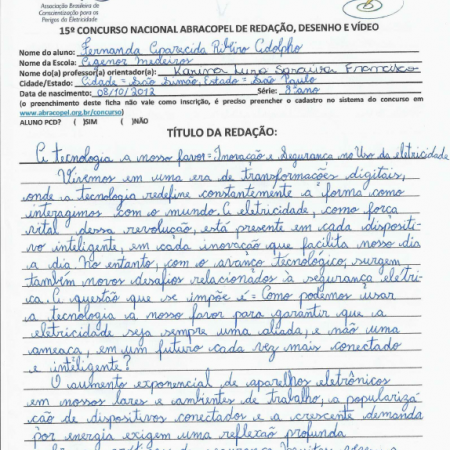 Associação Brasileira de
Conscientização para os
Perigos da Eletricidade
15º CONCURSO NACIONAL ABRACOPEL DE REDAÇÃO, DESENHO E VÍDEO
Nome do aluno: Fernanda Aparecida Ribeiro Adolpho
Nome da Escola: Agenor Medeiros
Nome do(a) professor(a) orientador(a): Karina Francisco
Cidade/Estado: Cidade = São Simão, Estado = São Paulo
Data de nascimento: 08/10/2012 Série: 7º ano
(o preenchimento deste ficha não vale como inscrição, é preciso preencher o cadastro no sistema do concurso em
www.abracopel.org.br/concurso)
ALUNO PCD? ( )SIM ( )NÃO
TÍTULO DA REDAÇÃO:
A tecnologia a nosso favor = Inovação e Segurança no Uso da eletricidade
Vivemos em uma era de transformações digitais,
onde a tecnologia redefine constantemente a forma como
interagimos com o mundo. A eletricidade, como força
vital dessa revolução, está presente em cada dispositi-
vo inteligente, em cada inovação que facilita nosso dia
a dia. No entanto, com o avanço tecnológico, surgem
também novos desafios relacionados à segurança elétri-
ca. A questão que se impõe é = Como podemos usar
a tecnologia a nosso favor para garantir que a
eletricidade seja sempre uma aliada, e não uma
ameaça, em um futuro cada vez mais conectado
e inteligente?
O aumento exponencial de aparelhos eletrônicos
em nossos lares e ambientes de trabalho, a populariza-
ção de dispositivos conectados e a crescente demanda
por energia exigem uma reflexão profunda